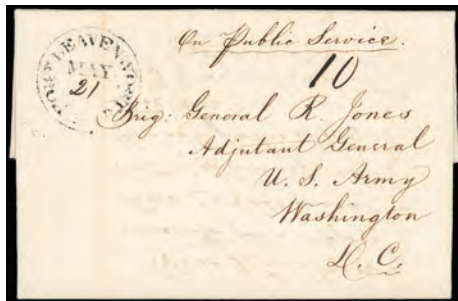 FORT LEAVENWORTH
MAY
21
On Public Service.
10
Brig: General R. Jones
Adjutant General
U. S. Army
Washington
D. C.